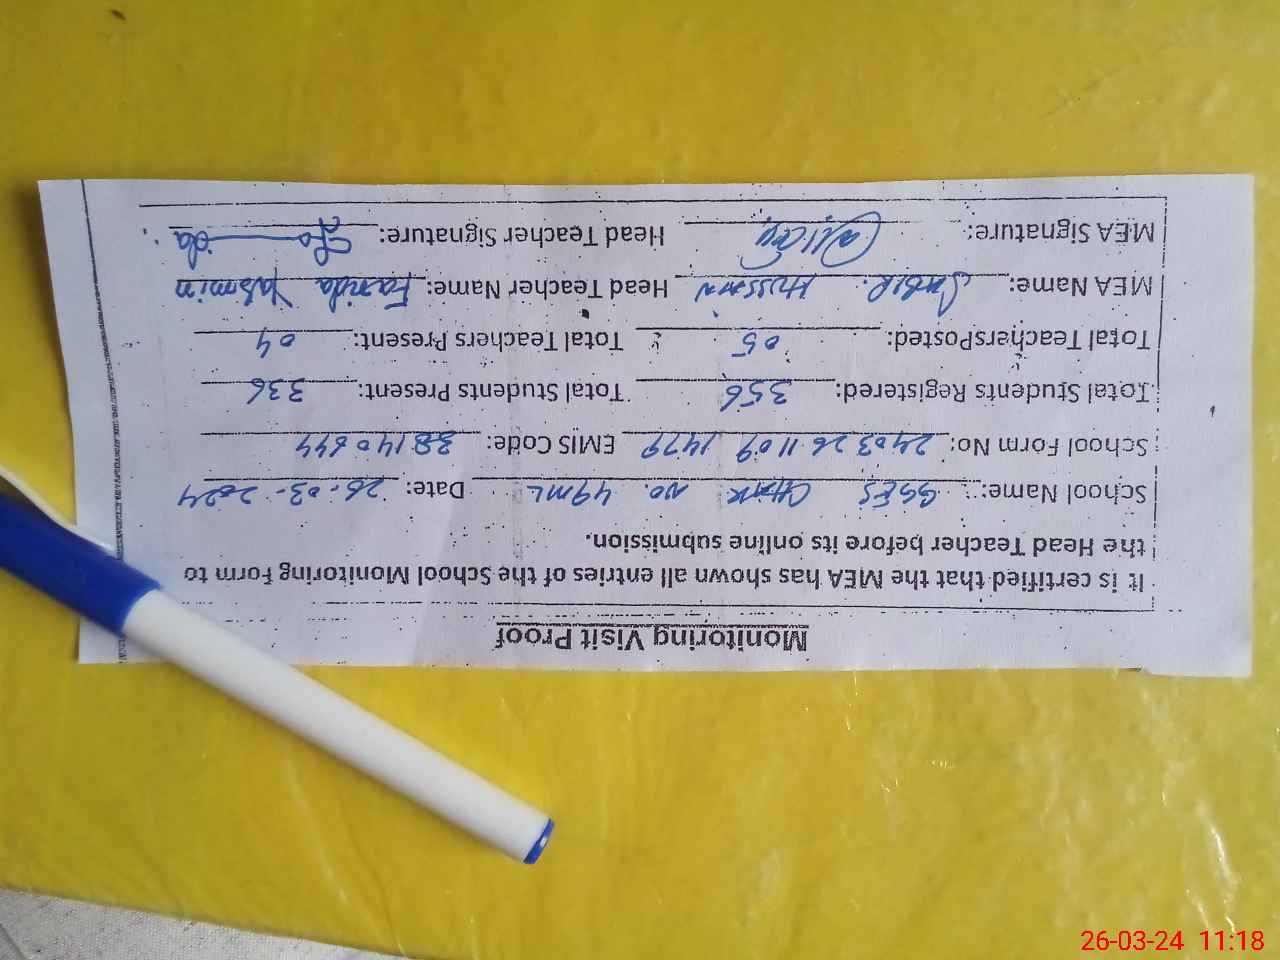 Monitoring Visit Proof
It is certified that the MEA has shown all entries of the School Monitoring Form to
the Head Teacher before its online submission.
School Name: GGES CHAK NO. 49ML Date: 26-03-2024
School Form No: 240326 1109 1479 EMIS Code: 38140644
Total Students Registered: 356 Total Students Present: 336
Total TeachersPosted: 05 Total Teachers Present: 04
MEA Name: SABIR HUSSAIN Head Teacher Name: Farida Yasmin
MEA Signature: Head Teacher Signature:
26-03-24 11:18